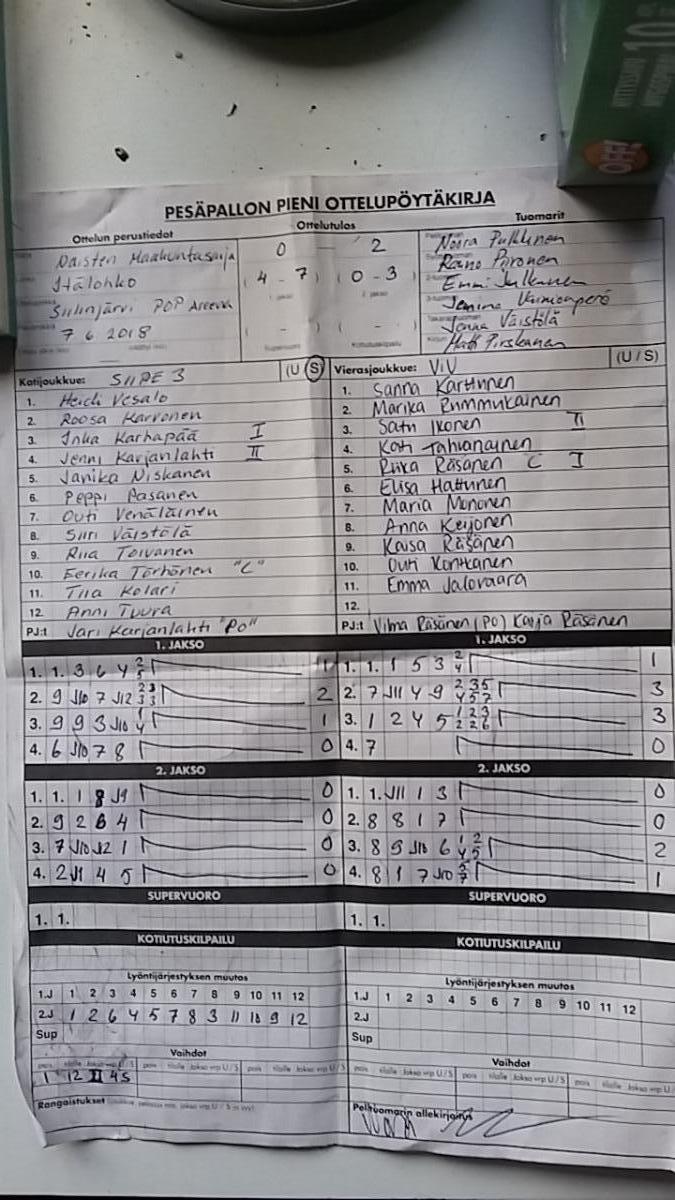 OFF!
PESÄPALLON PIENI OTTELUPÖYTÄKIRJA
Ottelun perustiedot
Ottelutulos
Tuomarit
Naisten Maakuntasarja
Itälohko
Siilinjärvi POP Areena
7 6 2018
0 - 2
(4 - 7) (0 - 3)
( - ) ( - )
Noora Pulkkinen
Piironen
Emmi Julkunen
Jenna Väistölä
Matti Pirskanen
Kotijoukkue: SIIPE 3 (U/S)
1. Heidi Vesalo
2. Roosa Karvonen
3. Inka Karhapää I
4. Jenni Karjanlahti II
5. Janika Niskanen
6. Peppi Aasanen
7. Outi Venäläinen
8. Siiri Väistölä
9. Riia Toivanen
10. Eerika Törhönen "C"
11. Tiia Kolari
12. Anni Tuura
PJ:t Jari Karjanlahti "PO"
Vierasjoukkue: ViV (U/S)
1. Sanna Karttunen
2. Marika Rummukainen
3. Satu Ikonen II
4. Kati Tahvanainen
5. Riika Räsänen C I
6. Elisa Hattunen
7. Maria Mononen
8. Anna Keijonen
9. Kaisa Räsänen
10. Outi Kontkanen
11. Emma Jalovaara
12.
PJ:t Vilma Räsänen (PO) Karja Räsänen
1. JAKSO
1. 1. 3 6 4 2/5 1
2. 9 J10 7 J12 2/3 3/3 2
3. 9 9 3 J10 1/4 1
4. 6 J10 7 8 0
1. JAKSO
1. 1. 1 5 3 2/4 1
2. 7 J11 4 9 2/4 3/5 5/7 3
3. 1 2 4 5 1/2 2/2 3/6 3
4. 7 0
2. JAKSO
1. 1. 1 8 J9 0
2. 9 2 6 4 0
3. 7 J10 J12 1 0
4. 2 J1 4 5 0
2. JAKSO
1. 1. J11 1 3 0
2. 8 8 1 7 0
3. 8 9 J10 6 1/4 2/5 2
4. 8 1 7 J10 5/7 1
SUPERVUORO
1. 1.
SUPERVUORO
1. 1.
KOTIUTUSKILPAILU
Lyöntijärjestyksen muutos
1.J 1 2 3 4 5 6 7 8 9 10 11 12
2.J 1 2 6 4 5 7 8 3 11 10 9 12
Sup
Vaihdot
pois tilalle Jakso vrp U/S pois tilalle Jakso vrp U/S pois tilalle Jakso vrp U/S
1 12 II 4S
Rangaistukset
KOTIUTUSKILPAILU
Lyöntijärjestyksen muutos
1.J 1 2 3 4 5 6 7 8 9 10 11 12
2.J
Sup
Vaihdot
pois tilalle Jakso vrp U/S pois tilalle Jakso vrp U/S pois tilalle Jakso vrp U/S
Pelituomarin allekirjoitus